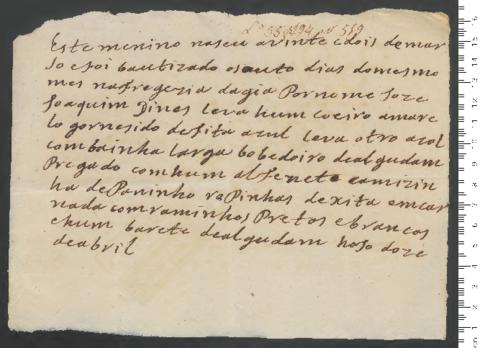 Lº 55 fl 294 nº 559
Este menino nasceu avinte edois demar
so e foi bautizado osauto dias domesmo
mes nafregezia dagia Pornome Joze
Joaquim Pines leva hum coeiro amare
lo gornesido defita azul leva otro azol
combainha larga bobedoiro dealgudam
Pregado comhum alfenete camizin
ha dePaninho raPinhas dexita emcar
nada comraminhos Pretos ebrancos
ehum barete dealgudam hoso doze
deabril